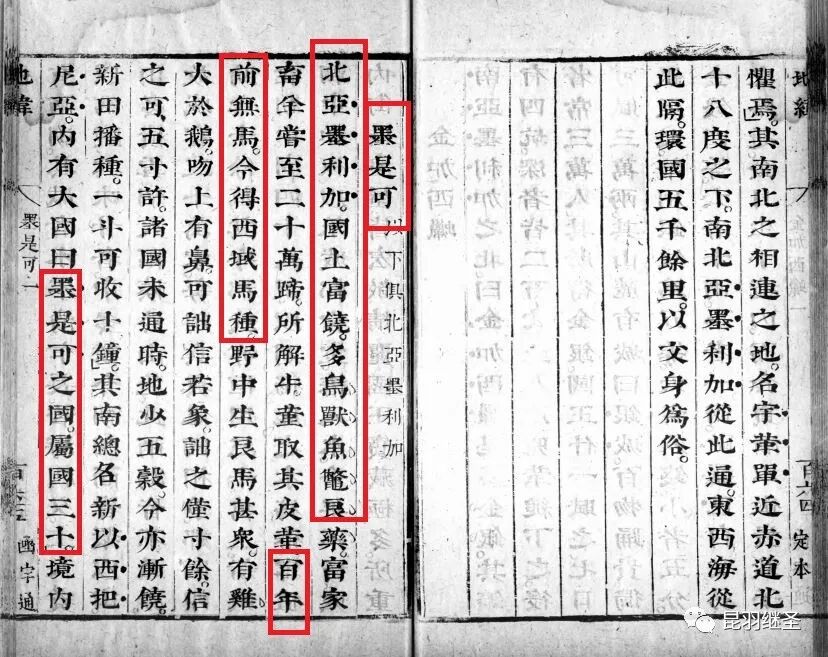 地緯 百六四 定本
懼焉。其南北之相連之地。名宇革單。近赤道北
十八度之下。南北亞墨利加從此通。東西海從
此隔。環國五千餘里。以文身爲俗。
墨是可 以下俱北亞墨利加
北亞墨利加。國土富饒。多鳥獸魚鼈良藥富家
畜羊嘗至二十萬蹄。所解牛。堇取其皮革。百年
前無馬。今得西域馬種。野中生良馬甚衆。有雞
大於鵝。吻上有鼻。可詘信若象。詘之僅寸餘。信
之可五寸許。諸國未通時。地少五穀。今亦漸饒。
新田播種。一斗可收十鐘。其南總名新以西把
尼亞。內有大國曰墨是可之國。屬國三十。境內
地緯 墨是可一 百六五 函宇通
昆羽继圣